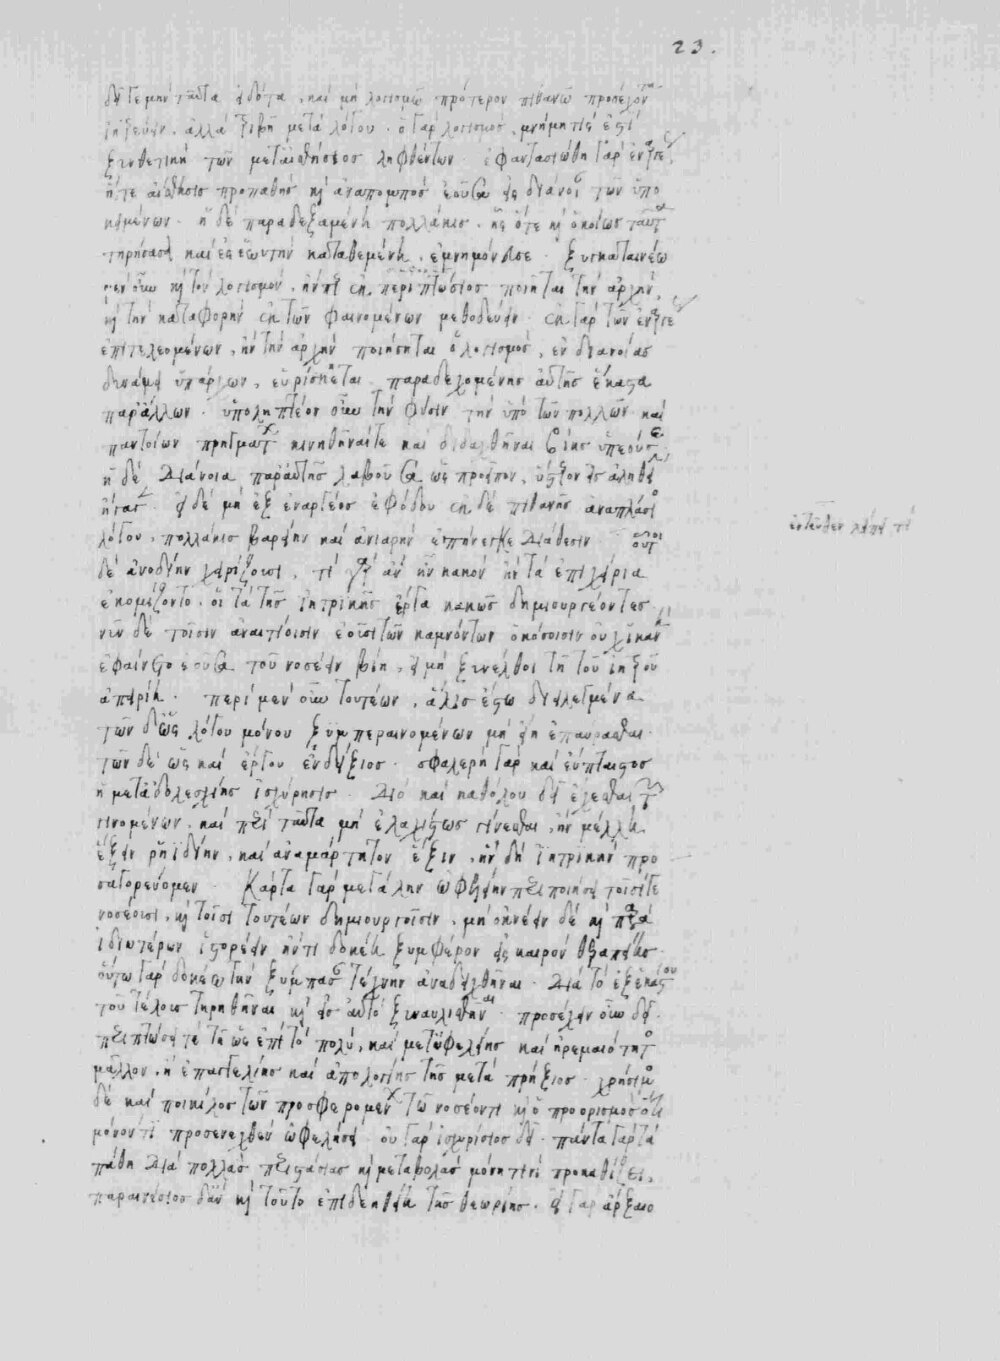 δεῖ γε μὴν ταῦτα εἰδότα, καὶ μὴ λογισμῷ πρότερον πιθανῷ προσέχοντα
ἰητρεύειν. ἀλλὰ τριβῇ μετὰ λόγου. ὁ γὰρ λογισμὸς, μνήμη τίς ἐστί
ξυνθετικὴ τῶν μεταἰσθήσιος ληφθέντων. ἐφαντασιώθη γὰρ ἐναργέως
ἥτε αἴσθησις προπαθὴς καὶ ἀναπομπὸς ἐοῦσα ἐς διάνοιαν τῶν ὑπο
κειμένων. ἡ δὲ παραδεξαμένη πολλάκις, οἷς ὅτε καὶ ὁκοίως ταῦτα
τηρήσασα καὶ ἐς ἑωυτὴν καταθεμένη, ἐμνημόνευσε. ξυγκαταινέω
μὲν οὖν καὶ τὸν λογισμὸν, ἤνπερ ἐκ περιπτώσιος ποιῆται τὴν ἀρχὴν,
καὶ τὴν καταφορὴν ἐκ τῶν φαινομένων μεθοδεύειν. ἐκ γὰρ τῶν ἐναργέως
ἐπιτελεομένων, ἢν τὴν ἀρχὴν ποιήσηται ὁ λογισμὸς, ἐν διανοίας
δυνάμει ὑπάρχων, εὑρίσκεται παραδεχομένης αὐτῆς ἕκαστα
παρἄλλων. ὑποληπτέον οὖν τὴν φύσιν τὴν ὑπὸ τῶν πολλῶν καὶ
παντοίων πρηγμάτων κινηθῆναί τε καὶ διδαχθῆναι βίης ὑπεούσης
ἡ δὲ διάνοια παραὐτῆς λαβοῦσα ὡς προεῖπον, ὕστερον ἐς ἀληθείην
ἤγαγεν. εἰ δὲ μὴ ἐξ ἐναργέος ἐφόδου ἐκ δὲ πιθανῆς ἀναπλάσιος
λόγου, πολλάκις βαρεῖην καὶ ἀνιαρὴν ἐπήνεγκε διάθεσιν. οὗτοι
δὲ ἀνοδίην χειρίζουσι. τί γὰρ ἂν ἦν κακὸν ἢν τὰ ἐπίχειρα
ἐκομίζοντο, οἱ τὰ τῆς ἰητρικῆς ἔργα κακῶς δημιουργέοντες
νῦν δὲ τοῖσιν ἀναιτίοισιν ἐοῦσι τῶν καμνόντων ὁκόσοισιν οὐχ ἱκανὴ
ἐφαίνετο ἐοῦσα τοῦ νοσέειν βίη, εἰ μὴ ξυνέλθοι τῇ τοῦ ἰητροῦ
ἀπειρίῃ. περὶ μὲν οὖν τουτέων, ἅλις ἔστω διειλεγμένα
τῶν δὡς λόγου μόνου ξυμπεραινομένων μὴ εἴη ἐπαύρασθαι.
τῶν δὲ ὡς καὶ ἔργου ἐνδείξιος. σφαλερὴ γὰρ καὶ εὔπταιστος
ἡ μεταδολεσχίης ἰσχύρησις. διὸ καὶ καθόλου δεῖ ἔχεσθαι τῶν
γινομένων. καὶ περὶ ταῦτα μὴ ἐλαχίστως γίνεσθαι, ἢν μέλλῃ
ἕξειν ῥηϊδίην, καὶ ἀναμάρτητον ἕξιν, ἣν δὴ ἰητρικὴν προ
σαγορεύομεν. Κάρτα γὰρ μεγάλην ὠφελείην περιποιήσει τοῖσί γε
νοσέουσι, καὶ τοῖσι τουτέων δημιουργοῖσιν. μὴ ὀκνέειν δὲ καὶ παρὰ
ἰδιωτέων ἱστορέειν ἤν τι δοκέῃ ξυμφέρον ἐς καιρὸν θεραπείης.
οὕτω γὰρ δοκέω τὴν ξύμπασαν τέχνην ἀναδειχθῆναι. διὰ τὸ ἐξ ἑκάστου
τοῦ τέλους τηρηθῆναι καὶ ἐς αὐτὸ ξυναυλισθῆναι. προσέχειν οὖν δεῖ
περιπτώσει τε τῇ ὡς ἐπὶ τὸ πολὺ, καὶ μετὠφελείης καὶ ἠρεμαιότητος
μᾶλλον, ἢ ἐπαγγελίης καὶ ἀπολογίης τῆς μετὰ πρήξιος. χρήσιμος
δὲ καὶ ποικίλος τῶν προσφερομένων τῷ νοσέοντι καὶ ὁ προορισμὸς ὅτι
μόνον τὶ προσενεχθὲν ὠφελήσει. οὐ γὰρ ἰσχυρίσιος δεῖ. πάντα γὰρ τὰ
πάθη διὰ πολλὰς περιστάσιας καὶ μεταβολὰς μόνῃ τινὶ προσκαθίζει.
παραινέσιος δἂν καὶ τοῦτο ἐπιδεηθείη τῆς θεωρίης. εἰ γὰρ ἄρξαιο
23.
ἐντεῦθεν λείπει τί